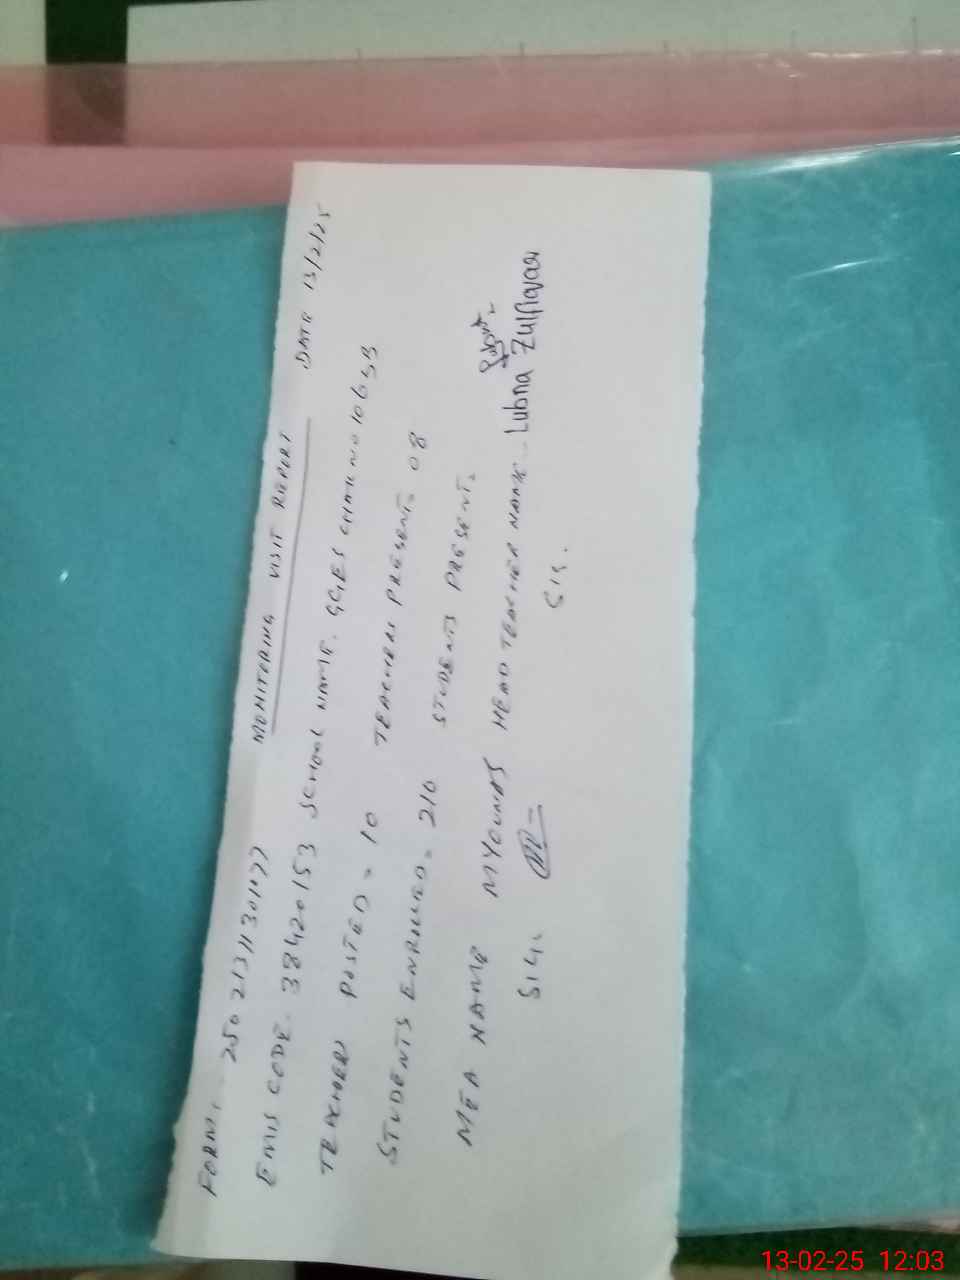 MONITORING VISIT REPORT
FORM. DATE 13/2/25
EMIS CODE. 38420153 SCHOOL NAME. GGES CHAK NO 106SB
TEACHERS POSTED = 10 TEACHERS PRESENT. 08
STUDENTS ENROLLED. 210 STUDENTS PRESENT.
MEA NAME M YOUNAS HEAD TEACHER NAME. Lubna Zulfiqaar
SIG. SIG.
13-02-25 12:03